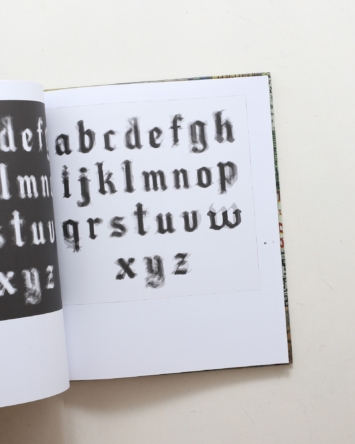 def
lmn
stuv
xyz
abcdefgh
ijklmnop
qrstuvw
xyz